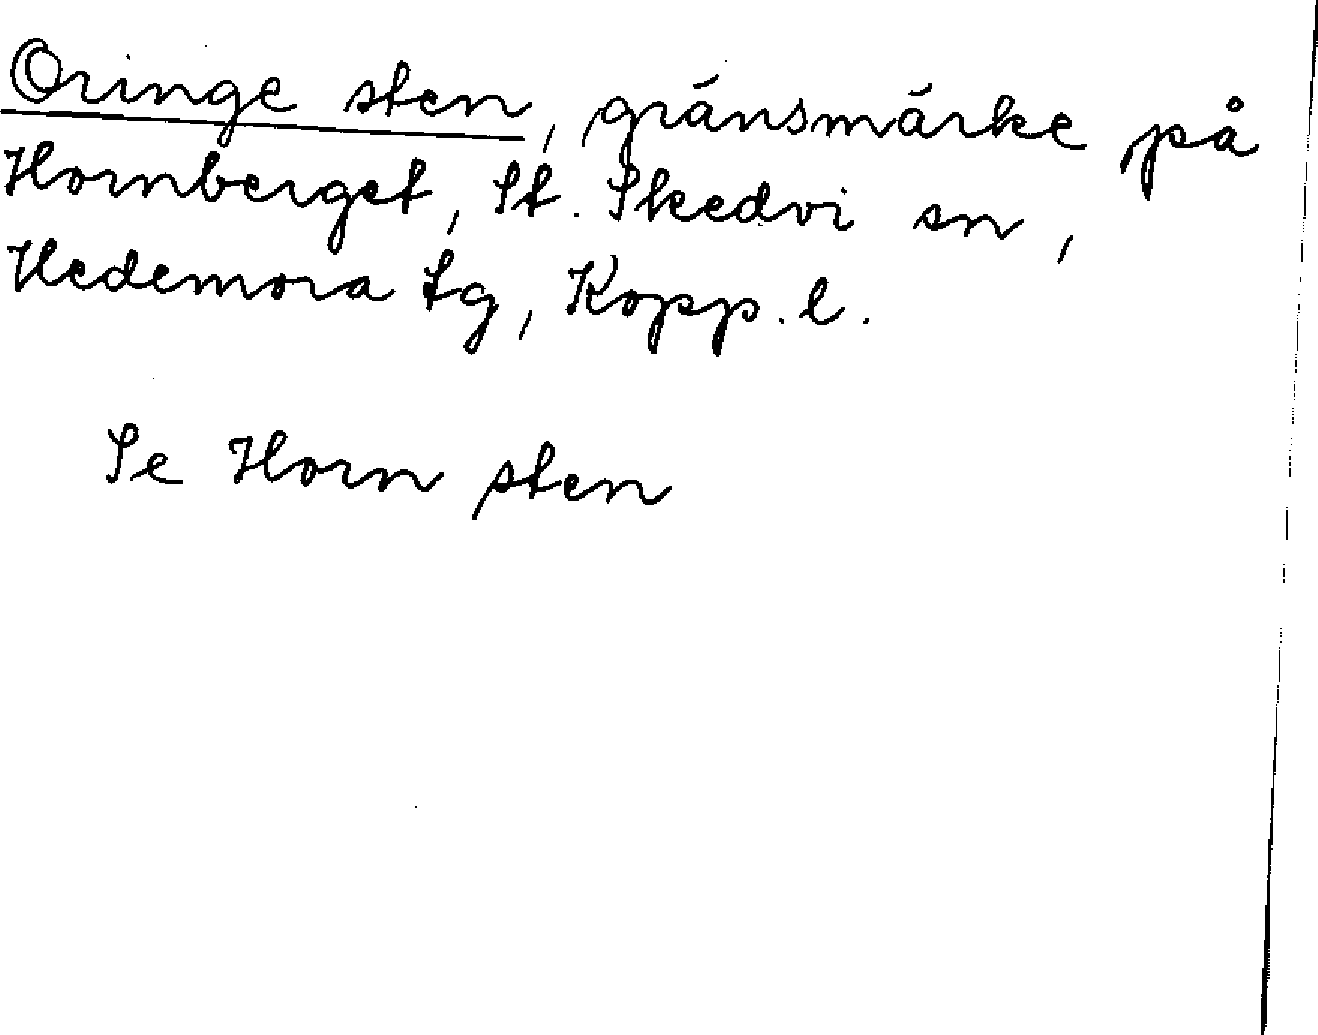 Oringe sten, gränsmärke på
Hornberget, St. Skedvi sn,
Hedemora tg, Kopp. l.
Se Horn sten